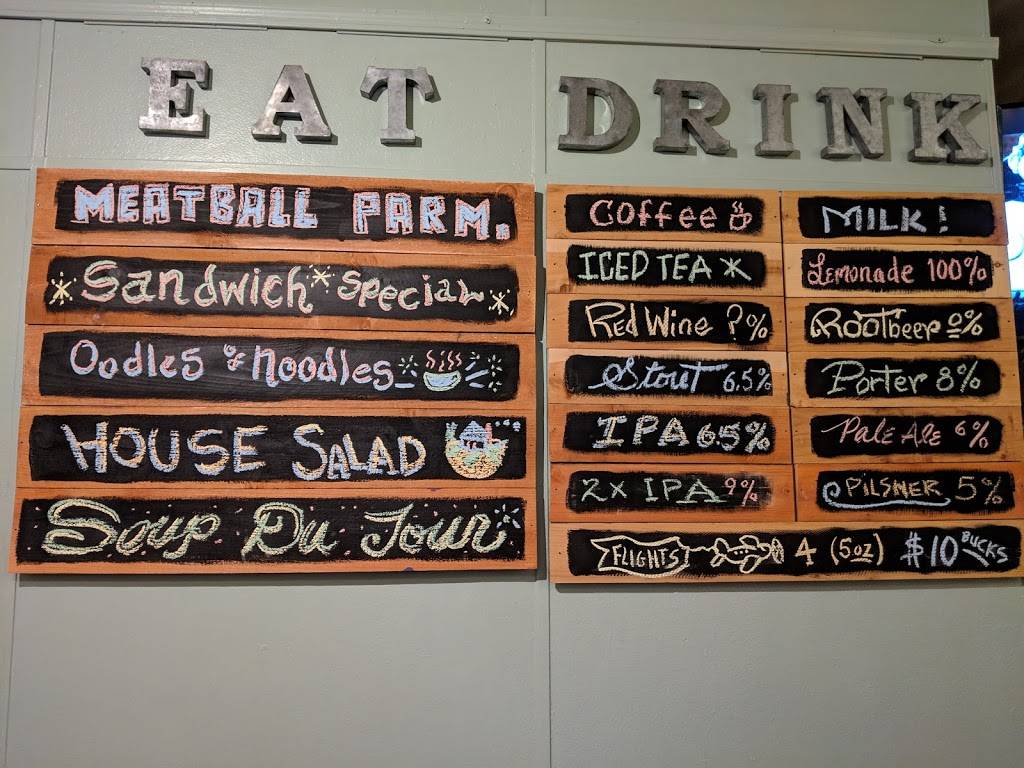 EAT
MEATBALL PARM.
Sandwich Special
Oodles of Noodles
HOUSE SALAD
Soup Du Jour
DRINK
Coffee
MILK!
ICED TEA
Lemonade 100%
Red Wine ?%
Rootbeer 0%
Stout 6.5%
Porter 8%
IPA 6.5%
Pale Ale 6%
2x IPA 9%
PILSNER 5%
FLIGHTS 4 (5oz) $10 BUCKS